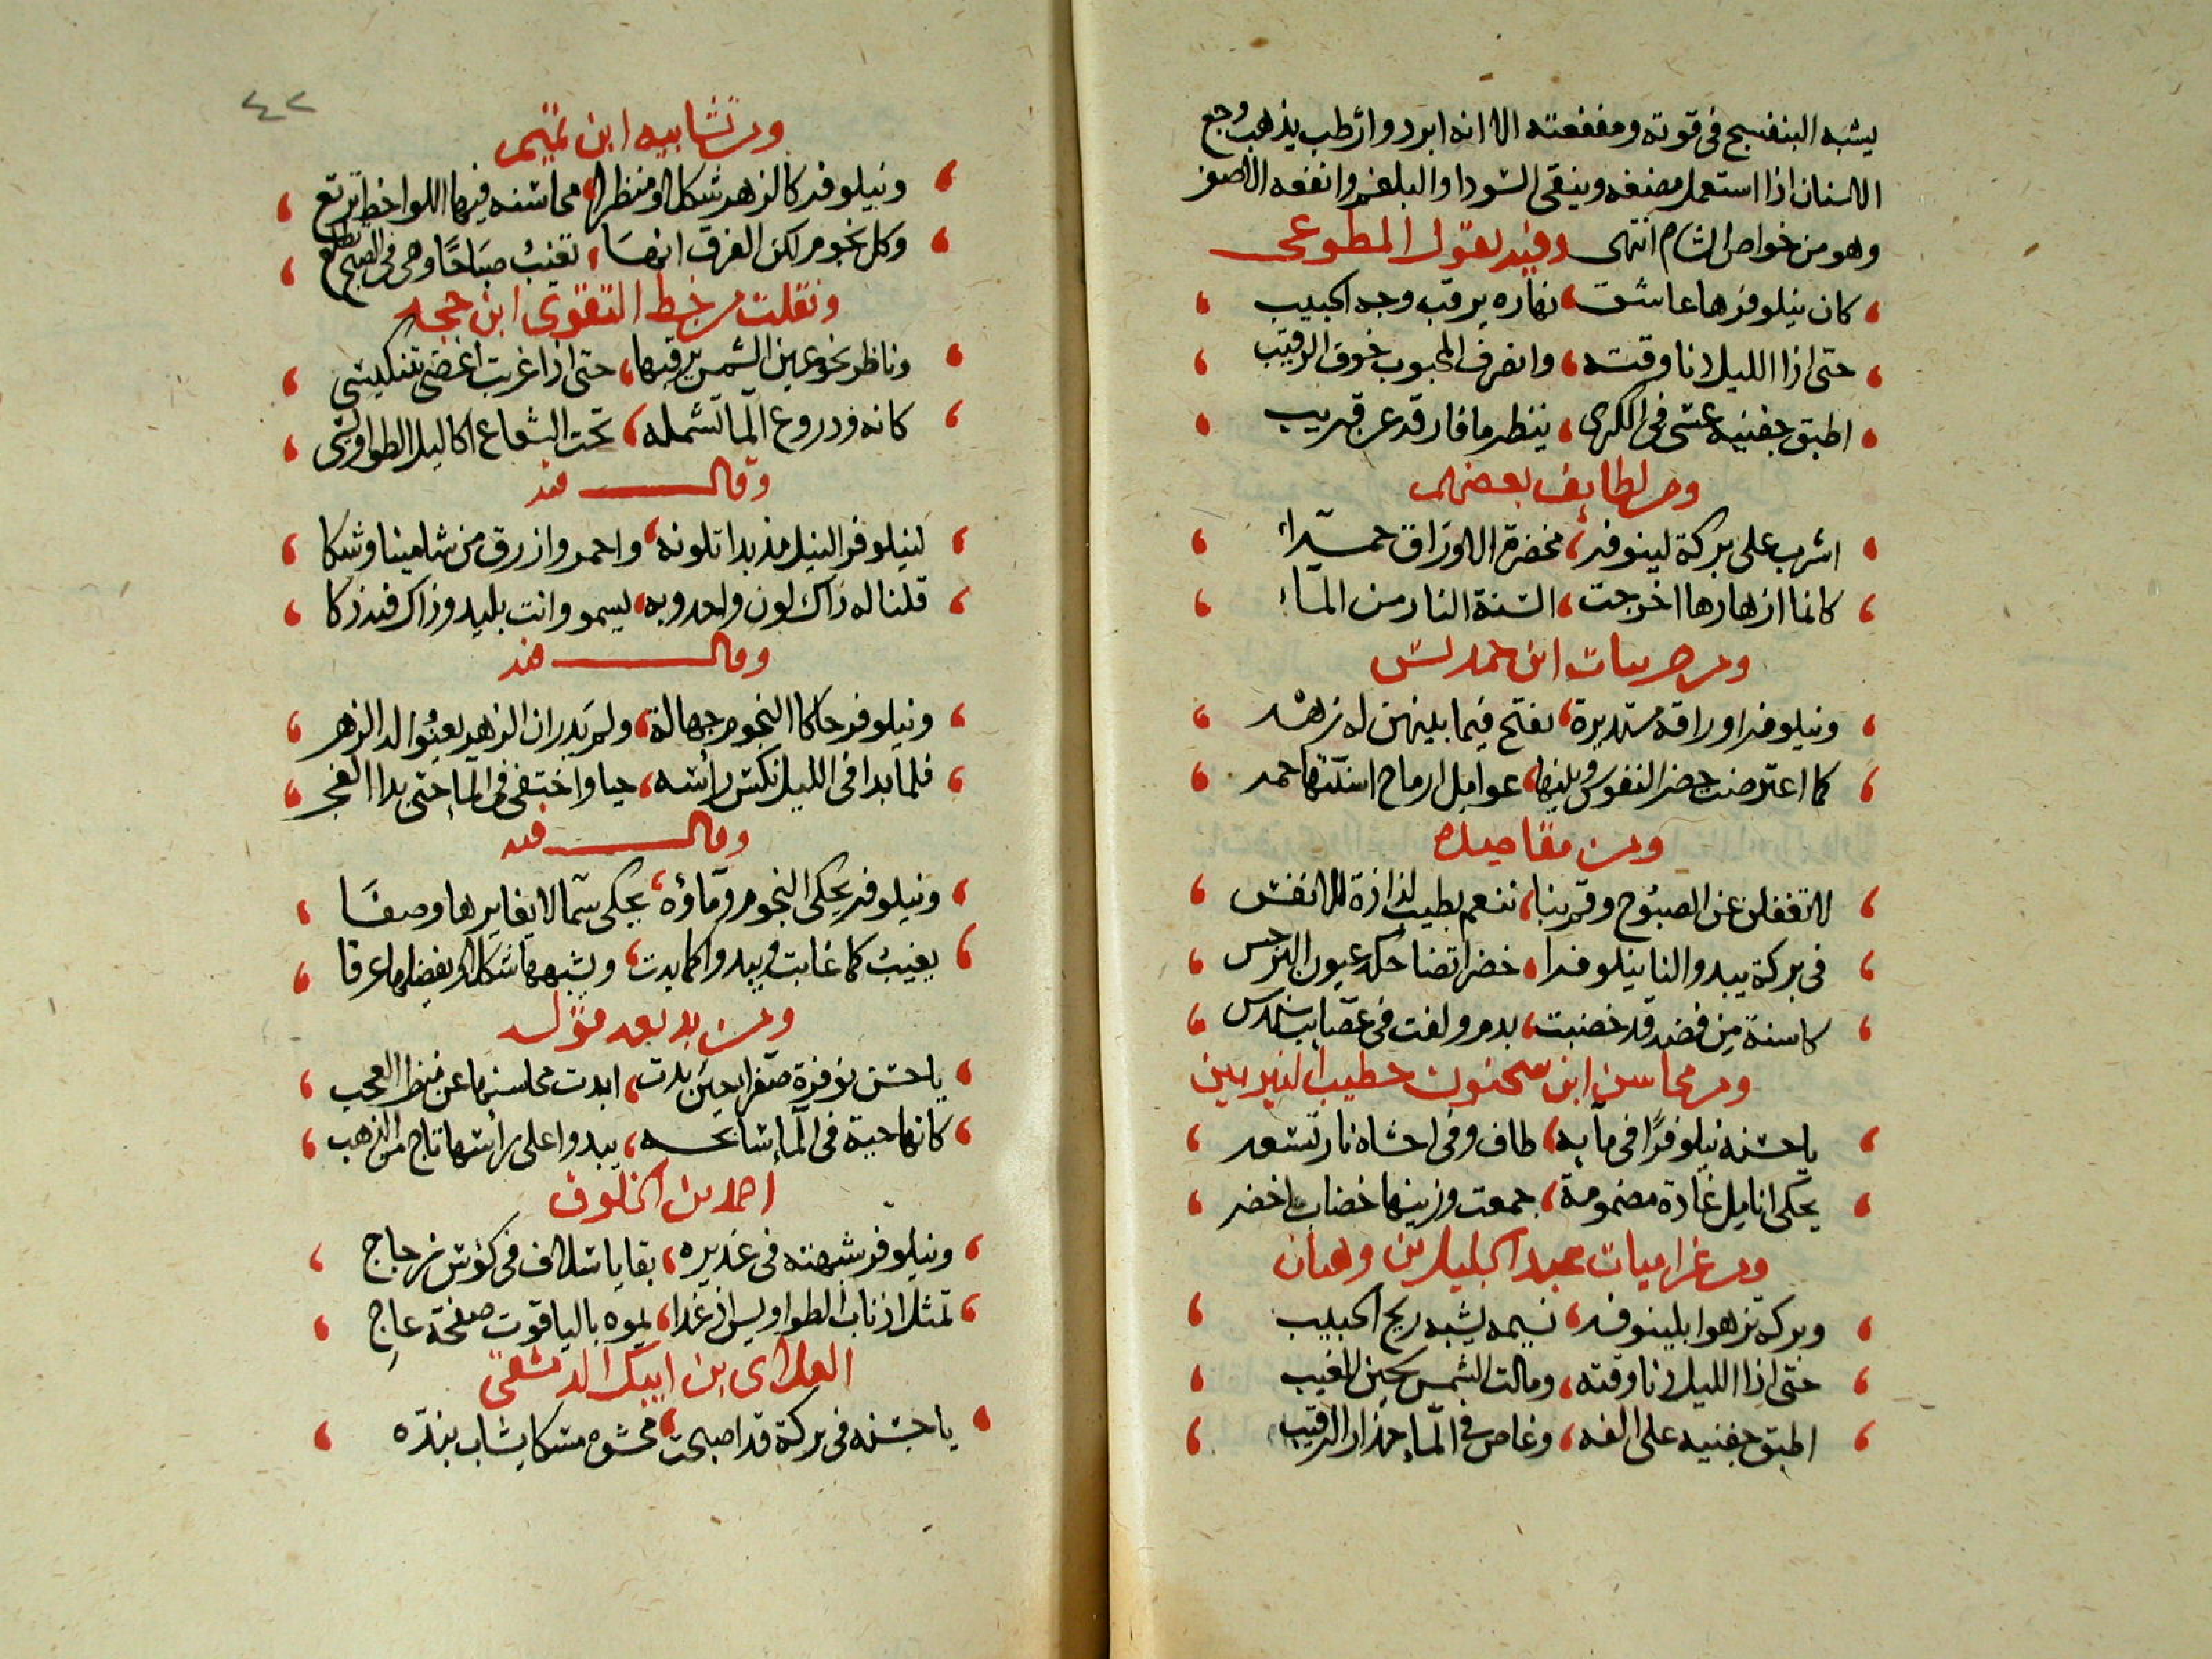 يشبه البنفسج في قوته ومنفعته الا انه ابرد وارطب يذهب وجع
الاسنان اذا استعمل مضغه وينقى السودا والبلغم وانفعه الاصفر
وهو من خواص الشام انتهى وفيه يقول المطوعى
كان نيلوفرها عاشق نهاره يرقب وجه الحبيب
حتى اذا الليل دنا وقته وانصرف المحبوب خوف الرقيب
اطبق جفنيه عسى في الكرى ينظر ما فارقه عن قريب
ومن لطايف بعضهم
اشرب على بركة لينوفر مخضرة الاوراق حمراء
كانما ازهارها اخرجت السنة النار من الماء
ومن ابن حمديس
ونيلوفر اوراقه مستديرة تفتح فيما بينهن له زهر
كما اعترضت خضر التروس وبينها عوامل ارماح اسنتها حمر
ومن مقاصيده
لا تغفلن عن الصبوح وقم بنا ننعم بطيب لذاذة الانفس
في بركة يبدو لنا نيلوفرا خضرا تضاحكه عيون النرجس
كاسنة من فضة قد خضبت بدم ولفت في عصايب سندس
ومن محاسن ابن سحنون خطيب النيربين
يا حسنه نيلوفرا في مآيه طاف وفي احشاه نار تسعر
يحكى انامل غادة مضمومة جمعت وزينها خضاب اخضر
ومن غراميات عبد الجليل بن وهبان
وبركة تزهوا بلينوفر نسيمه يشبه ريح الحبيب
حتى اذا الليل دنا وقته ومالت الشمس لحين المغيب
اطبق جفنيه على الفه وغاص في المآ حذار الرقيب
٤٢
ومن تشابيه ابن تميم
ونيلوفر كالزهر شكلا ومنظرا محاسنه فيها اللواحظ ترتع
وكل نجوم لكن الفرق انها تغيب صباحا وهى في الصبح تطلع
ونقلت من خط التقوى ابن حجه
وناظر نحو عين الشمس يرقبها حتى اذا غربت اغضى بتنكيس
كانه ودروع المآ تشمله تحت الشعاع اكاليل الطواويس
وقال فيه
لنيلوفر النيل مذ بدا تلونه واحمر وازرق من شامينا وشكا
قلنا له ذاك لون واحد وبه يسمو وانت بليد وذاك فيه ذكا
وقال فيه
ونيلوفر حاكا النجوم جهالة ولم يدر ان الزهر يعنو له الزهر
فلما بدا في الليل نكس راسه حيا واختفى في المآ حتى بدا الفجر
وقال فيه
ونيلوفر يحكى النجوم ومآؤه يحكى سما لا يغايرها وصفا
يغيب كما غابت ويبدوا كما بدت ويشبهها شكلا ويفضلها عرفا
ومن بديعه قوله
يا حسن نوفرة صفرا حين بدت ابدت محاسنها عن منظر العجب
كانها حية في المآ سابحه يبدوا على راسها تاج من الذهب
احمد بن الخلوف
ونيلوفر شبهته في غديره بقايا سلاف في كؤس زجاج
تمثل اذناب الطواويس اذ غدا يموه بالياقوت صفحة عاج
العلاى بن ايبك الدمشقى
يا حسنه في بركة قد اصبحت محشوة مسكا يشاب بنده